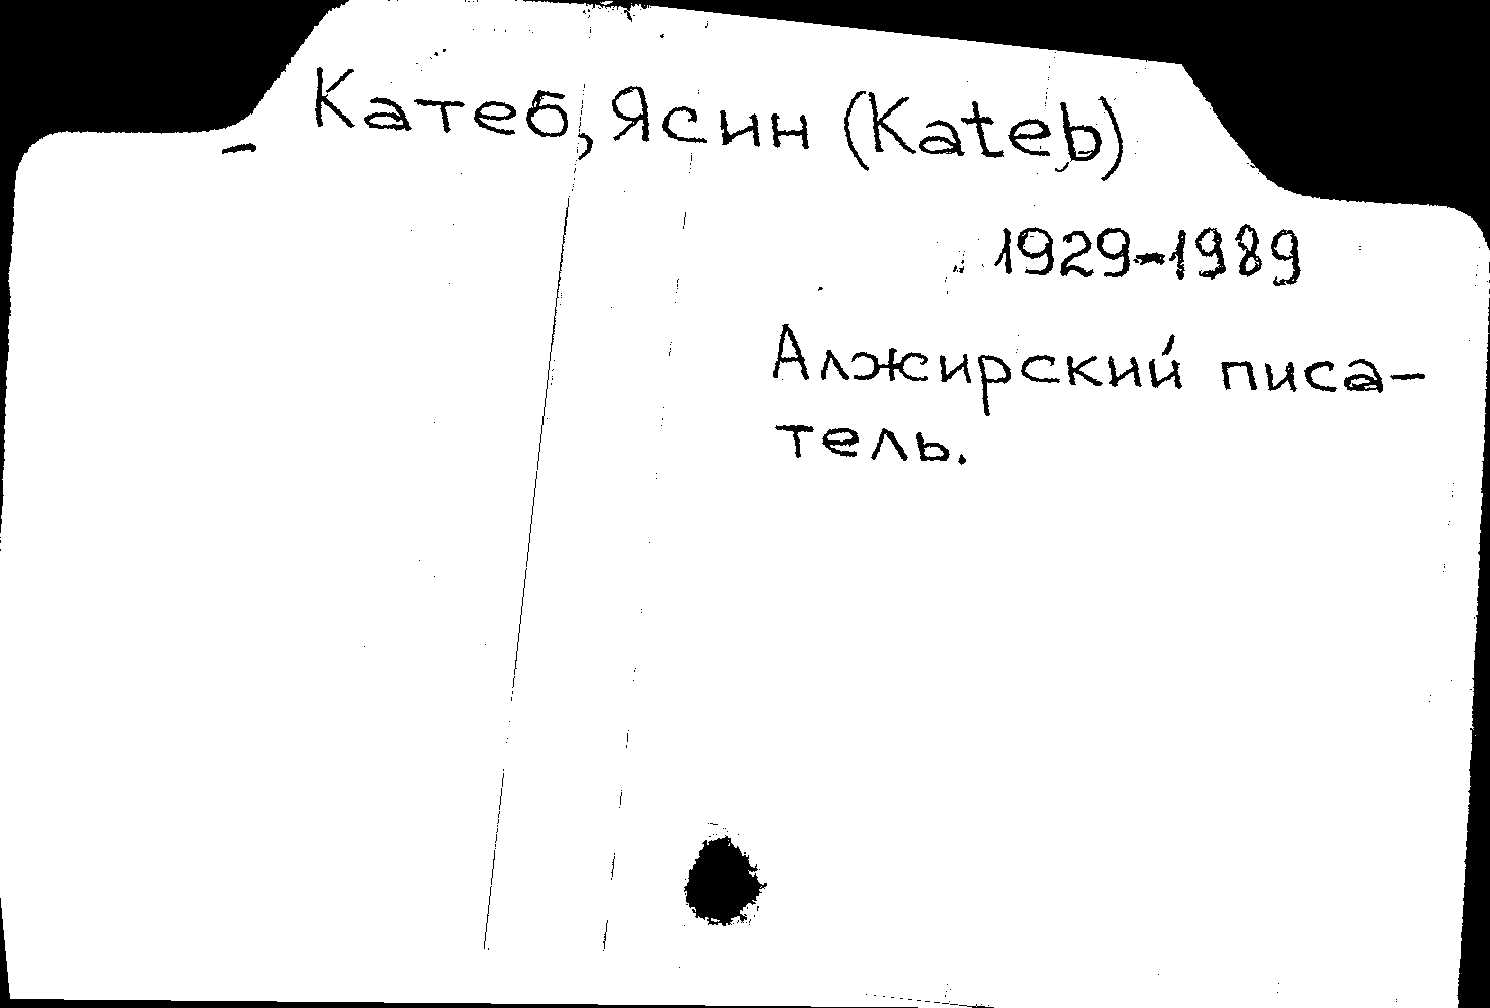 Катеб, Ясин (Kateb)
1929-1989
Алжирский писа-
тель.